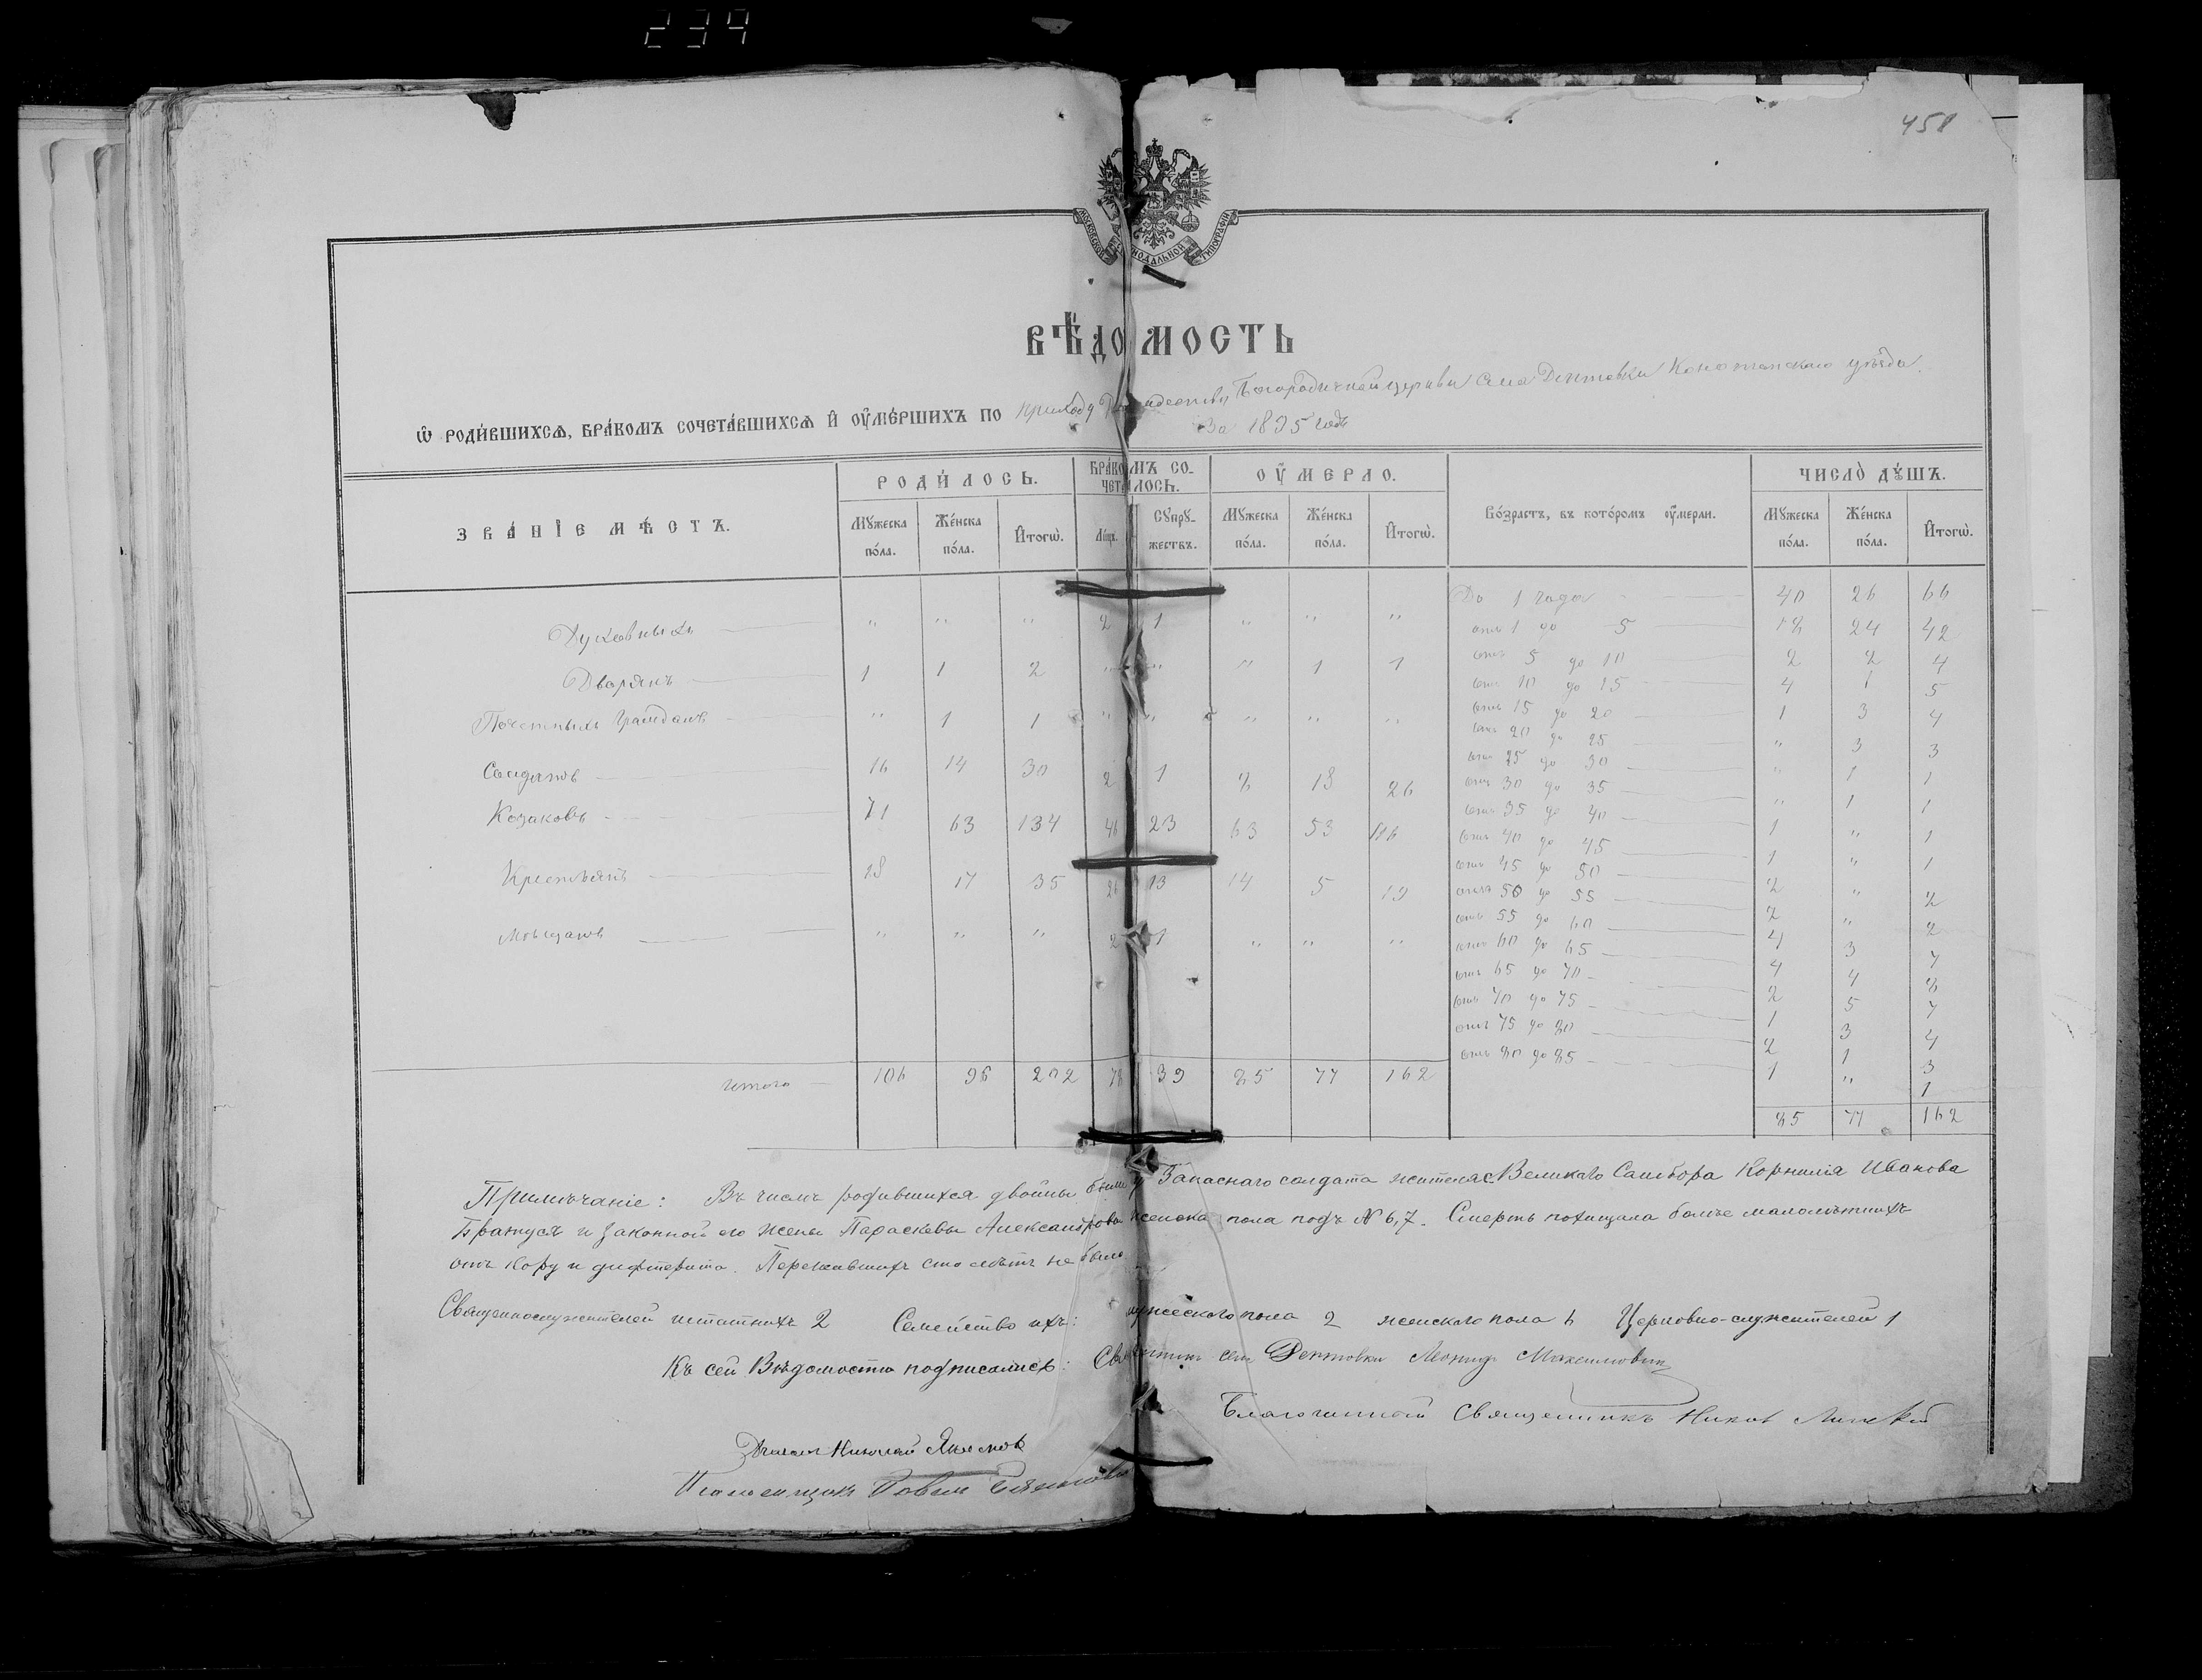 234
458
МОСКОВСКОЙ СѴНОДАЛЬНОЙ ТИПОГРАФІИ
ВѢДОМОСТЬ
Ѡ РОДИВШИХСѦ, БРАКОМЪ СОЧЕТАВШИХСѦ И ОУМЕРШИХЪ ПО приходу Рождество Богородичной церкви села Дептовки Конотопскаго уѣзда.
За 1895 годъ
ЗВАНІЕ МѢСТЪ. РОДИЛОСЬ. БРАКОМЪ СОЧЕТАЛОСЬ. ОУМЕРЛО. Возрастъ, въ которомъ оумерли. ЧИСЛО ДꙊШЪ.
Мꙋжеска пола. Женска пола. Итогѡ. Лицъ. Сꙋпрꙋжествъ. Мꙋжеска пола. Женска пола. Итогѡ. Мꙋжеска пола. Женска пола. Итогѡ.
Духовныхъ " " " 2 1 " " "
Дворянъ 1 1 2 " " " 1 1
Почетныхъ Гражданъ " 1 1 " " " " "
Солдатовъ 16 14 30 2 1 8 18 26
Козаковъ 71 63 134 46 23 63 53 116
Крестьянъ 18 17 35 26 13 14 5 19
Мѣщановъ " " " 2 1 " " "
Итого 106 96 202 78 39 85 77 162
До 1 года 40 26 66
отъ 1 до 5 18 24 42
отъ 5 до 10 2 2 4
отъ 10 до 15 4 1 5
отъ 15 до 20 1 3 4
отъ 20 до 25 " 3 3
отъ 25 до 30 " 1 1
отъ 30 до 35 " 1 1
отъ 35 до 40 1 " 1
отъ 40 до 45 1 " 1
отъ 45 до 50 2 " 2
отъ 50 до 55 2 " 2
отъ 55 до 60 4 3 7
отъ 60 до 65 4 4 8
отъ 65 до 70 2 5 7
отъ 70 до 75 1 3 4
отъ 75 до 80 2 1 3
отъ 80 до 85 1 " 1
85 77 162
Примѣчаніе: Въ числѣ родившихся двойни были у Запаснаго солдата жителя с. Великаго Самбора Корнилія Иванова
Братуся и законной его жены Параскевы Александровой женска пола подъ № 6, 7. Смерть похищала болѣе малолѣтнихъ
отъ кору и дифтерита. Пережившихъ сто лѣтъ не было.
Священнослужителей штатныхъ 2 Семейство ихъ: мужескаго пола 2 женскаго пола 6 Церковно-служителей 1
Къ сей Вѣдомости подписались: Священникъ села Дептовки Леонидъ Максимовичъ
Благочинный Священникъ
Діаконъ Николай
Псаломщикъ Павелъ